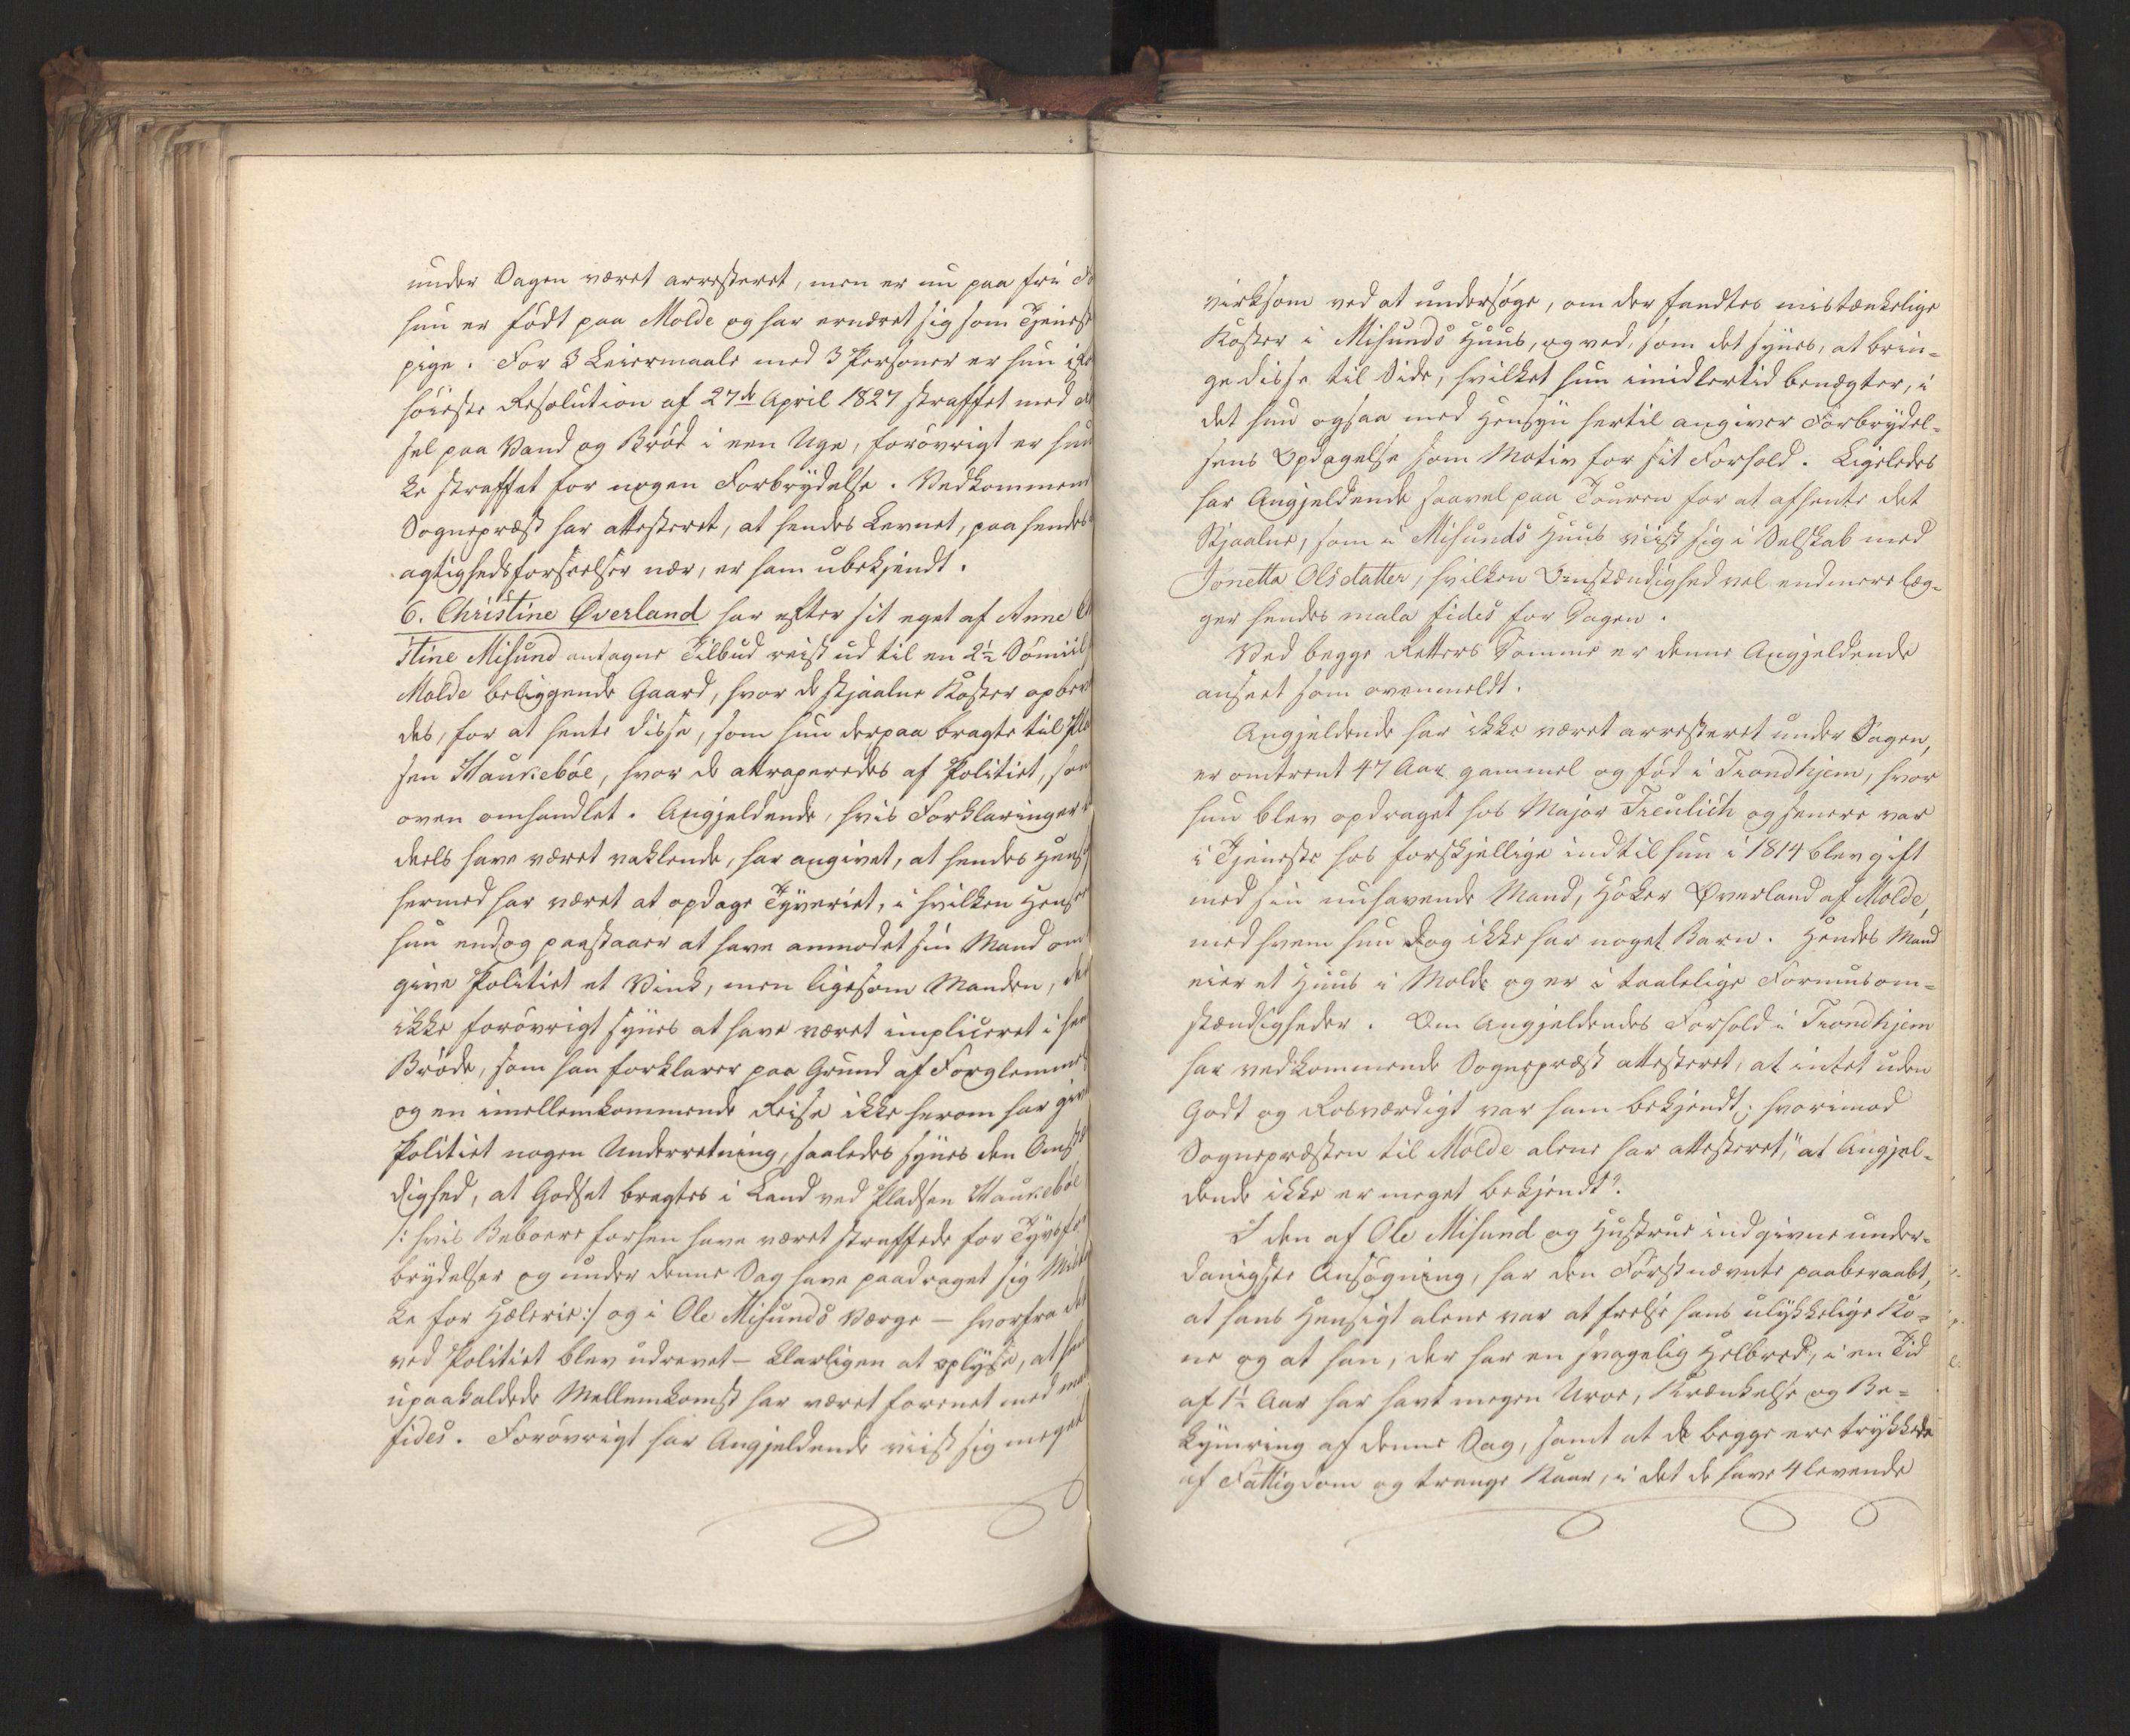 under Sagen været arresteret, men er nu paa fri Fo
hun er født paa Molde og har ernæret sig som Tjeneste
pige. For 3 Leiermaale med 3 Personer er hun
høieste Resolution af 27de April 1827 straffet med
sel paa Vand og Brød i een Uge, forøvrigt er hun
ke straffet for nogen Forbrydelse. Vedkommende
Sognepræst har attesteret, at hendes Levnet, paa hendes
agtighedsforseelser nær, er ham ubekjendt.
6. Christine Øverland har efter sit eget af Anne
stine Misund antagne Tilbud reist ud til en 2½ Sømiil
Molde beliggende Gaard, hvor de stjaalne Koster opbeva
des, for at hente disse, som hun derpaa bragte til Pla
sen Haukebøe, hvor de attraperedes af Politiet, som
oven omhandlet. Angjeldende, hvis Forklaringer
deels have været vaklende, har angivet, at hendes Hens
hermed har været at opdage Tyveriet, i hvilken Hens
hun endog paastaaer at have anmodet sin Mand om
give Politiet et Vink, men ligesom Manden, der
ikke forøvrigt synes at have været impliceret i hen
Brøde, som han forklarer paa Grund af Forglemmel
og en imellemkommende Reise ikke herom har give
Politiet nogen Underretning, saaledes synes den Omst
dighed, at Godset bragtes i Land ved Pladsen Haukebøe
/: hvis Beboere forhen have været straffede for Tyvsfor
brydelser og under denne Sag have paadraget sig Mistan
ke for Hæleri :/ og i Ole Misunds Værge — hvorfra det
ved Politiet blev udrevet — klarligen at oplyse, at hen
upaakaldede Mellemkomst har været forenet med mala
fides. Forøvrigt har Angjeldende viist sig meget
virksom ved at undersøge, om der fandtes mistænkelige
Koster i Misunds Huus, og ved, som det synes, at brin-
ge disse til Side, hvilket hun imidlertid benægter, i
det hun ogsaa med Hensyn hertil angiver Forbrydel-
sens Opdagelse som Motiv for sit Forhold. Ligeledes
har Angjeldende saavel paa Touren for at afhente det
Stjaalne, som i Misunds Huus viist sig i Selskab med
Jonetta Olsdatter, hvilken Omstændighed vel end mere læg-
ger hendes mala fides for Dagen.
Ved begge Retters Domme er denne Angjeldende
anseet som ovenmeldt.
Angjeldende har ikke været arresteret under Sagen,
er omtrent 47 Aar gammel og fød i Trondhjem, hvor
hun blev opdraget hos Major Treulich og senere var
i Tjeneste hos forskjellige indtil hun i 1814 blev gift
med sin nuhavende Mand, Høker Øverland af Molde,
med hvem hun dog ikke har noget Barn. Hendes Mand
eier et Huus i Molde og er i taalelige Formuesom-
stændigheder. Om Angjeldendes Forhold i Trondhjem
har vedkommende Sognepræst attesteret, at intet uden
Godt og Rosværdigt var ham bekjendt; hvorimod
Sognepræsten til Molde alene har attesteret, "at Angjel-
dende ikke er meget bekjendt".
I den af Ole Misund og Hustrue indgivne under-
danigste Ansøgning, har den Førstnævnte paaberaabt,
at hans Hensigt alene var at frelse hans ulykkelige Ko-
ne og at han, der har en svagelig Helbred, i en Tid
af 1½ Aar har havt megen Uroe, Krænkelse og Be-
kymring af denne Sag, samt at de begge ere trykkede
af Fattigdom og trange Kaar, i det de have 4 levende